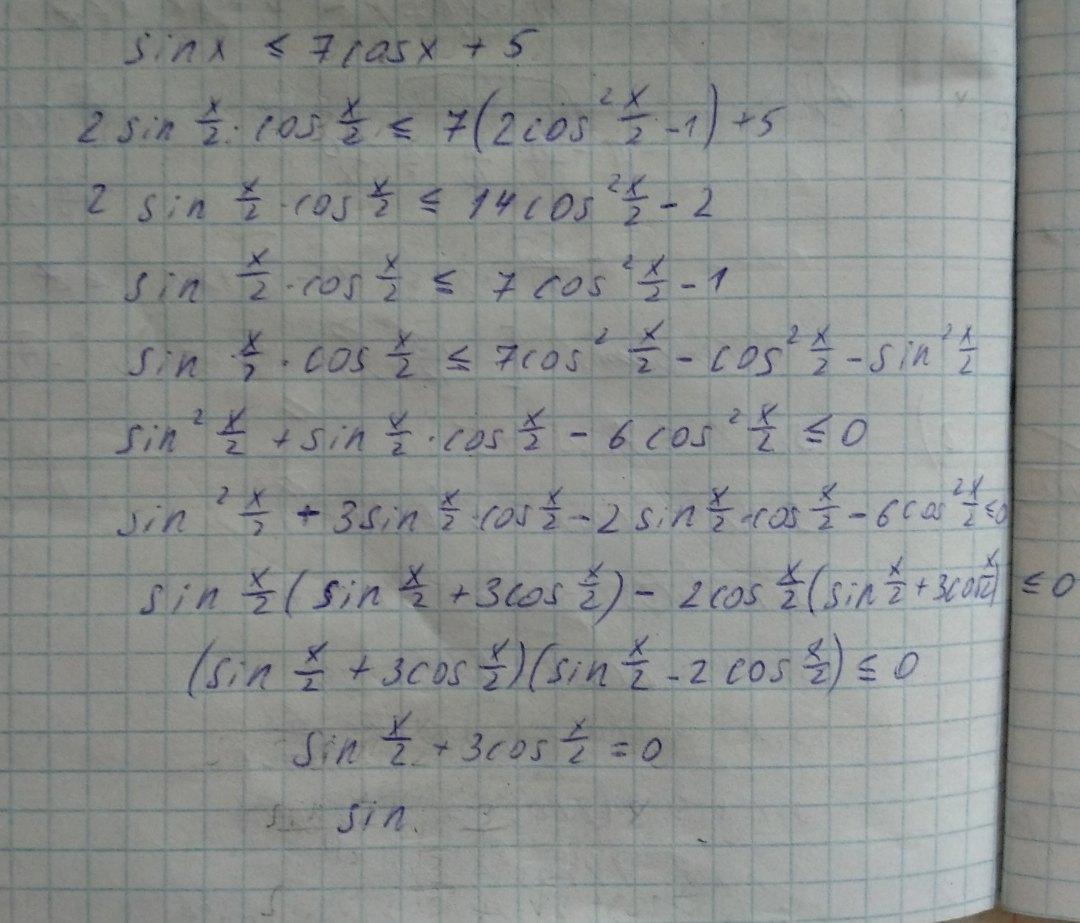 sin x ≤ 7cos x + 5
2 sin x/2 · cos x/2 ≤ 7(2cos² x/2 - 1) + 5
2 sin x/2 · cos x/2 ≤ 14cos² x/2 - 2
sin x/2 · cos x/2 ≤ 7cos² x/2 - 1
sin x/2 · cos x/2 ≤ 7cos² x/2 - cos² x/2 - sin² x/2
sin² x/2 + sin x/2 · cos x/2 - 6cos² x/2 ≤ 0
sin² x/2 + 3sin x/2 · cos x/2 - 2sin x/2 · cos x/2 - 6cos² x/2 ≤ 0
sin x/2 (sin x/2 + 3cos x/2) - 2cos x/2 (sin x/2 + 3cos x/2) ≤ 0
(sin x/2 + 3cos x/2)(sin x/2 - 2cos x/2) ≤ 0
sin x/2 + 3cos x/2 = 0
sin